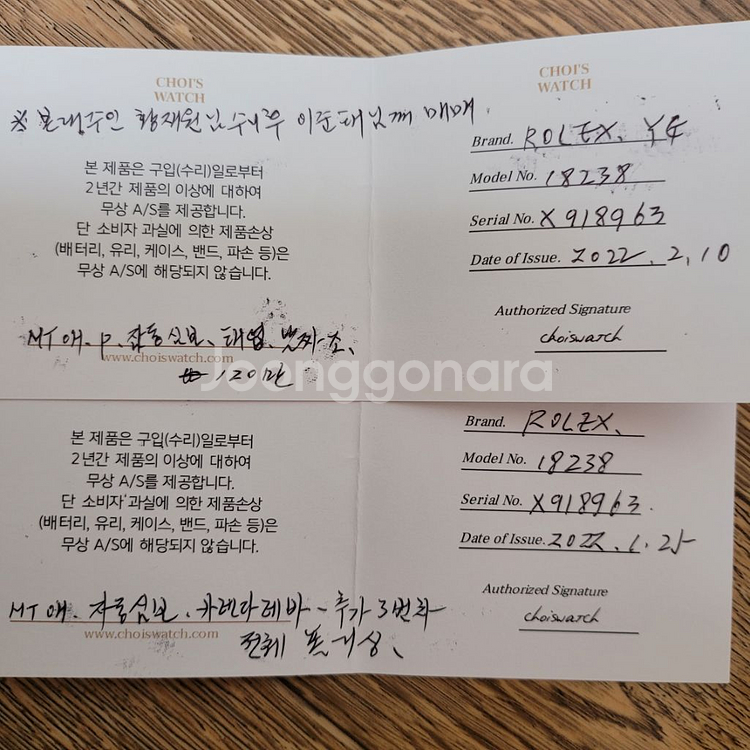 CHOI'S
WATCH
※ 본래주인 황재원님 이준태님께 매매
본 제품은 구입(수리)일로부터
2년간 제품의 이상에 대하여
무상 A/S를 제공합니다.
단 소비자 과실에 의한 제품손상
(배터리, 유리, 케이스, 밴드, 파손 등)은
무상 A/S에 해당되지 않습니다.
MT애. P. 자동심보. 태엽. 날짜
www.choiswatch.com
120만
CHOI'S
WATCH
Brand. ROLEX.
Model No. 18238
Serial No. X918963
Date of Issue. 2022. 2, 10
Authorized Signature
choiswatch
Joonggonara
본 제품은 구입(수리)일로부터
2년간 제품의 이상에 대하여
무상 A/S를 제공합니다.
단 소비자 과실에 의한 제품손상
(배터리, 유리, 케이스, 밴드, 파손 등)은
무상 A/S에 해당되지 않습니다.
MT애. 자동심보. 카렌다레바 - 추가 3번차
www.choiswatch.com
전체
Brand. ROLEX.
Model No. 18238
Serial No. X918963.
Date of Issue. 2022. 1. 25
Authorized Signature
choiswatch